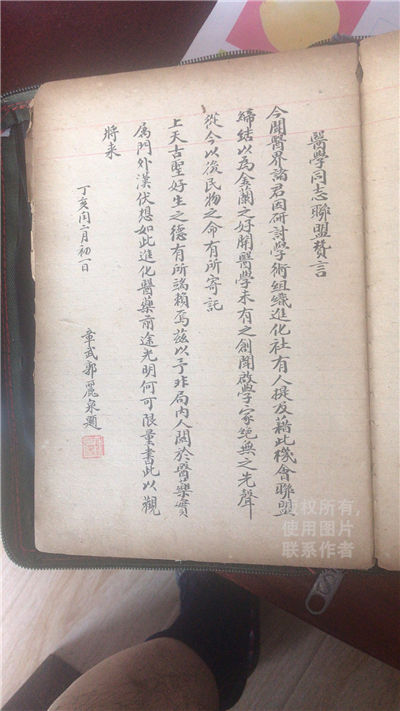 醫學同志聯盟贅言
今聞醫界諸君因研討學術組織進化社有人提及藉此機會聯盟
締結以為金蘭之好開醫學未有之創聞啟學家絕無之先聲
從今以後民物之命有所寄託
上天古聖好生之德有所端賴焉茲以予非局內人關於醫藥實
屬門外漢伏想如此進化醫藥前途光明何可限量書此以觀
將來
丁亥閏二月初一日
章武郭麗泉題
版权所有,
使用图片
联系作者